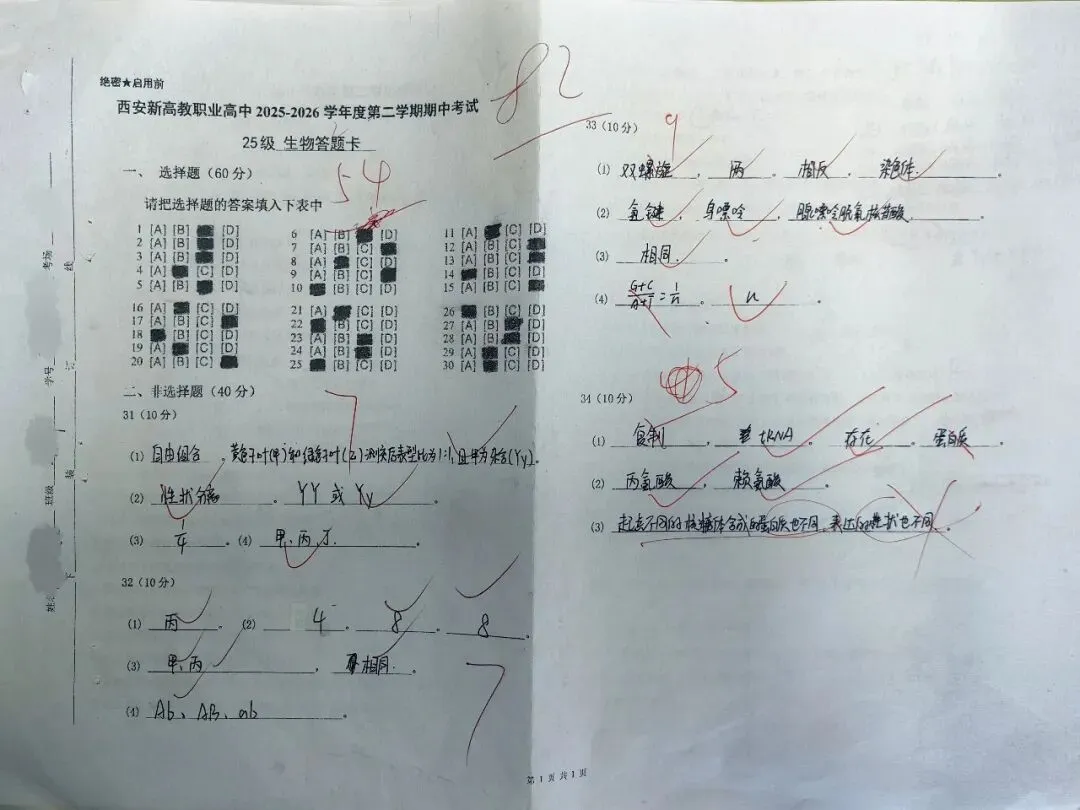 绝密★启用前
西安新高教职业高中 2025-2026 学年度第二学期期中考试
25级 生物答题卡
82
一、 选择题(60分)
54
请把选择题的答案填入下表中
1 [A] [B] [D]
2 [A] [B] [D]
3 [A] [B] [D]
4 [A] [C] [D]
5 [A] [B] [D]
6 [A] [B] [D]
7 [A] [B] [C]
8 [A] [C] [D]
9 [A] [B] [C]
10 [B] [C] [D]
11 [A] [C] [D]
12 [A] [B] [C]
13 [A] [B] [C]
14 [B] [C] [D]
15 [A] [B] [C]
16 [A] [C] [D]
17 [A] [B] [C]
18 [B] [C] [D]
19 [A] [C] [D]
20 [A] [B] [C]
21 [A] [C] [D]
22 [B] [C] [D]
23 [A] [B] [D]
24 [A] [B] [D]
25 [B] [C] [D]
26 [B] [C] [D]
27 [A] [B] [D]
28 [A] [B] [D]
29 [A] [C] [D]
30 [A] [C] [D]
二、非选择题(40分)
31(10分)
7
(1) 自由组合 。
(2) 性状分离 。 YY 或 Yy 。
(3) 1/4 。(4) 甲、丙、丁. 。
32(10分)
(1) 丙 。 (2) 4 . 8 . 8 .
(3) 甲、丙 , 相同. 。
(4) Ab、AB、ab 。
7
33(10分)
9
(1) 双螺旋 , 两 , 相反 , 染色体. 。
(2) 氢键 , 鸟嘌呤 , 腺嘌呤脱氧核苷酸 。
(3) 相同. 。
(4) G+C/A+T=1/n 。 n 。
5
34(10分)
(1) 复制 , tRNA 。 存在 , 蛋白质 。
(2) 丙氨酸 , 赖氨酸 。
(3) 起点不同的核糖体合成的蛋白质也不同,表达的性状也不同 。
第 1 页 共 1 页
考场
学号
班级
姓名
线
订
装